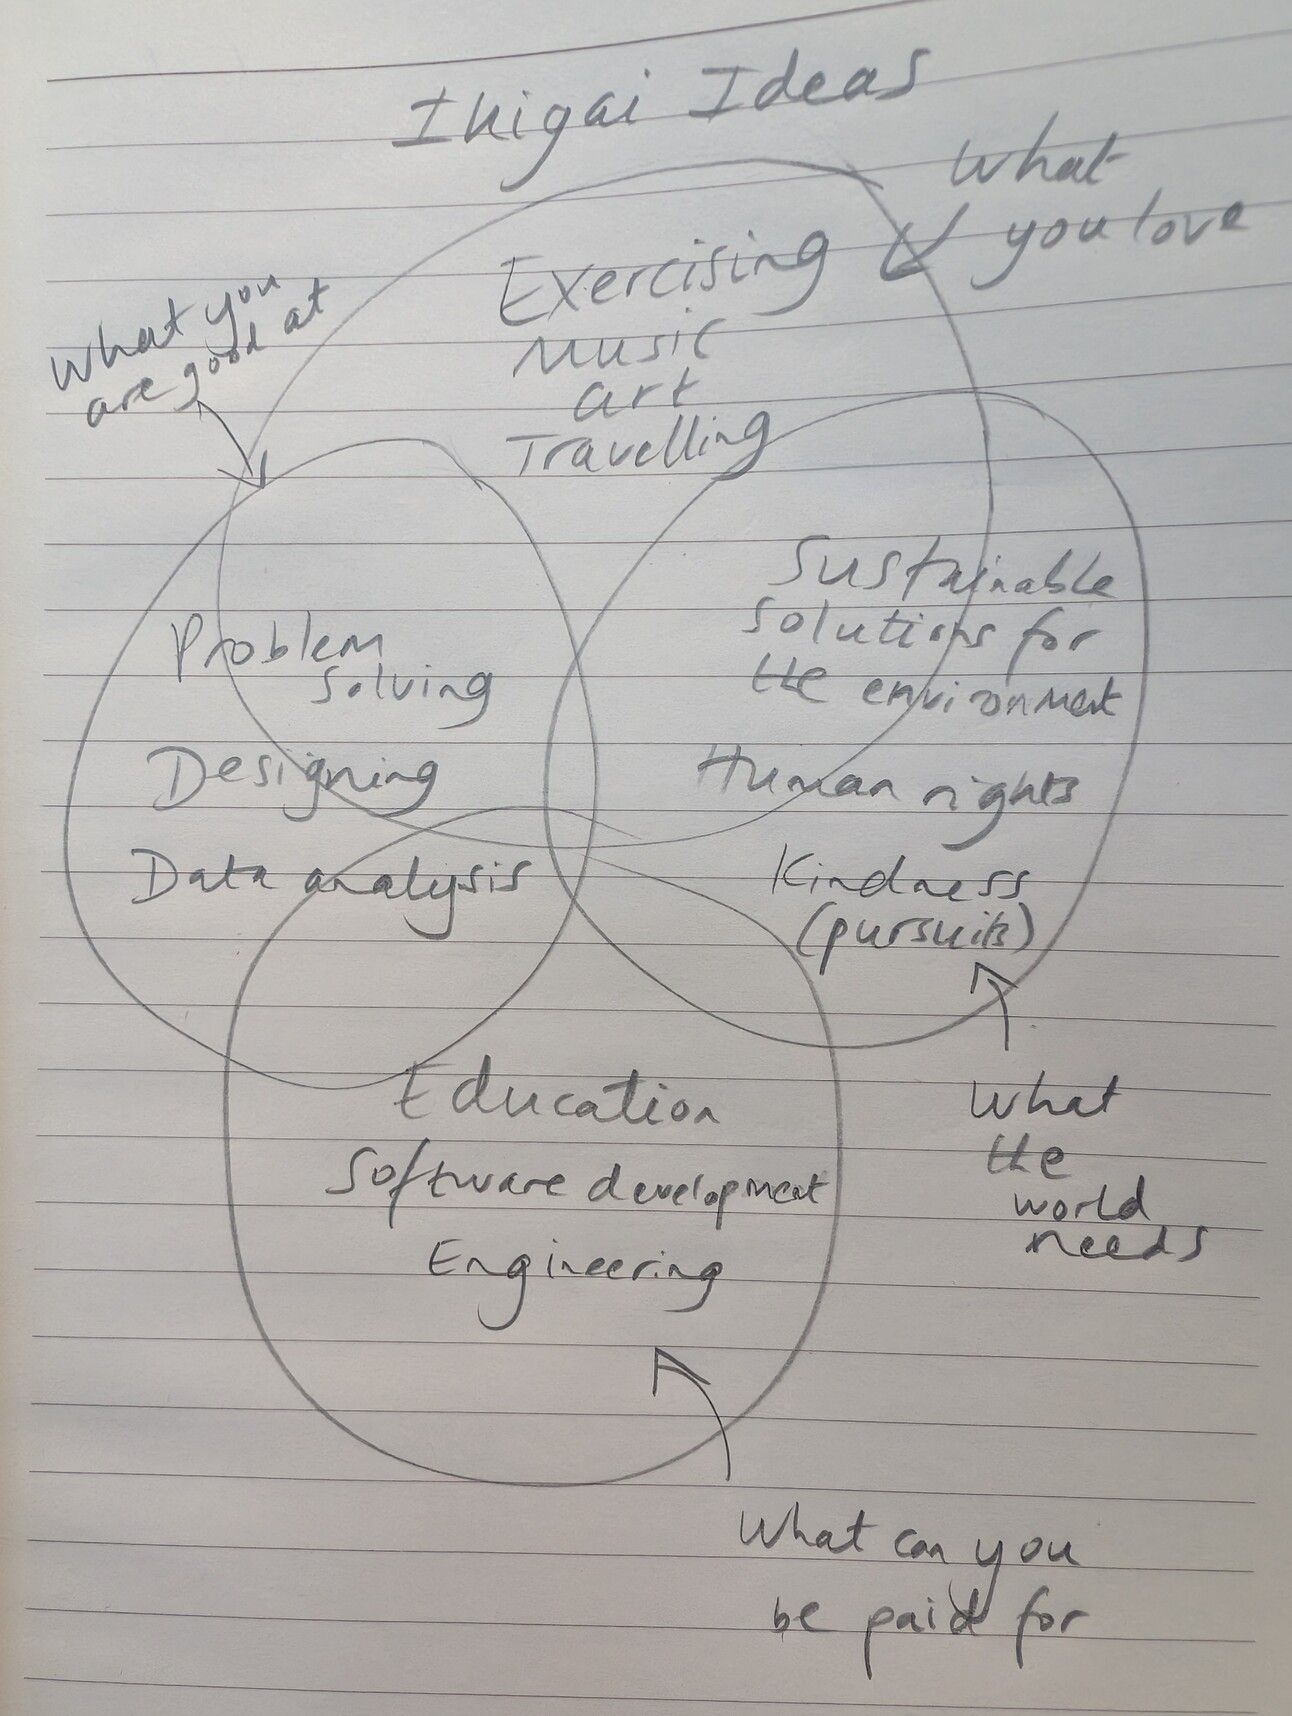 Ikigai Ideas
What
you love
Exercising
Music
art
Travelling
What you
are good at
Problem
solving
Designing
Data analysis
Sustainable
solutions for
the environment
Human rights
Kindness
(pursuits)
What
the
world
needs
Education
Software development
Engineering
What can you
be paid for